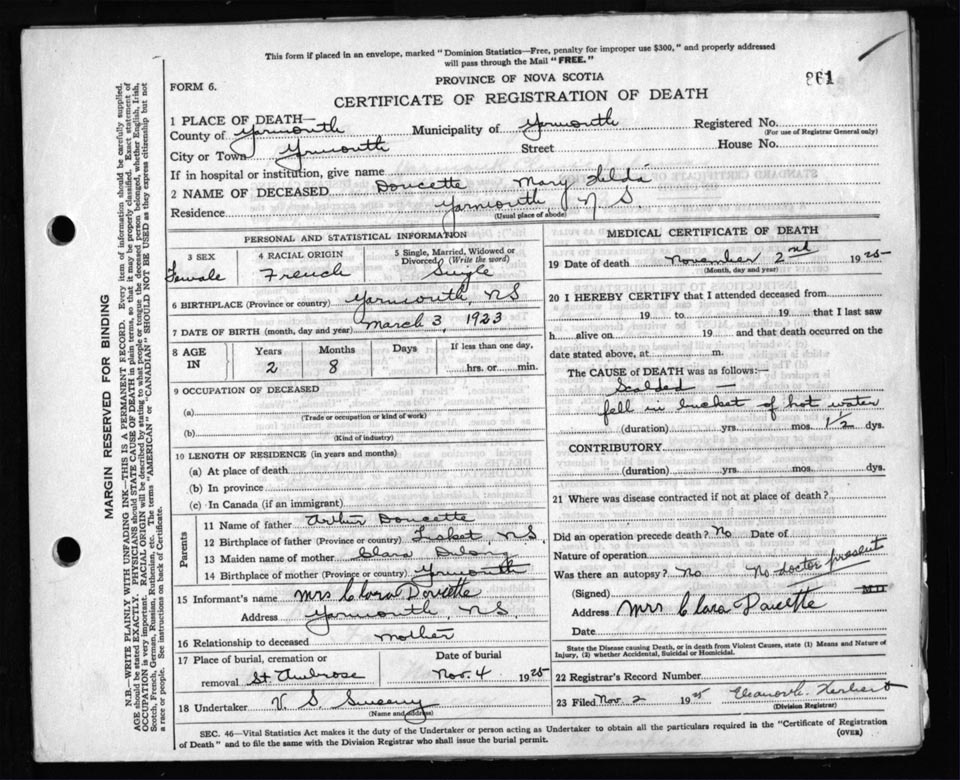 This form if placed in an envelope, marked "Dominion Statistics—Free, penalty for improper use $300," and properly addressed
will pass through the Mail "FREE."
PROVINCE OF NOVA SCOTIA
FORM 6.
861
CERTIFICATE OF REGISTRATION OF DEATH
1 PLACE OF DEATH—
County of Yarmouth Municipality of Yarmouth Registered No.
(For use of Registrar General only)
City or Town Yrmouth Street House No.
If in hospital or institution, give name
2 NAME OF DECEASED Doucette Mary Hilda
Residence Yarmouth, N S.
(Usual place of abode)
PERSONAL AND STATISTICAL INFORMATION
3 SEX 4 RACIAL ORIGIN 5 Single, Married, Widowed or
Divorced (Write the word)
Female French Single
6 BIRTHPLACE (Province or country) Yarmouth, NS
7 DATE OF BIRTH (month, day and year) March 3, 1923
8 AGE IN Years Months Days If less than one day,
2 8 hrs. or min.
9 OCCUPATION OF DECEASED
(a)
(Trade or occupation or kind of work)
(b)
(Kind of industry)
10 LENGTH OF RESIDENCE (in years and months)
(a) At place of death
(b) In province
(c) In Canada (if an immigrant)
Parents
11 Name of father Arthur Doucette
12 Birthplace of father (Province or country) N.S.
13 Maiden name of mother Clara
14 Birthplace of mother (Province or country) Yrmouth
15 Informant's name Mrs Clara Doucette
Address Yarmouth, NS
16 Relationship to deceased mother
17 Place of burial, cremation or Date of burial
removal St Ambrose Nov. 4 1925
18 Undertaker V. S. Sweeny
(Name and address)
MEDICAL CERTIFICATE OF DEATH
19 Date of death November 2nd 1925
(Month, day and year)
20 I HEREBY CERTIFY that I attended deceased from
19 to 19 that I last saw
h alive on 19 and that death occurred on the
date stated above, at m.
The CAUSE of DEATH was as follows:—
Scalded —
fell in bucket of hot water
(duration) yrs. mos. 1/2 dys.
CONTRIBUTORY
(duration) yrs. mos. dys.
21 Where was disease contracted if not at place of death?
Did an operation precede death? No Date of
Nature of operation
Was there an autopsy? No No doctor present
(Signed) M.D
Address Mrs Clara Doucette
Date
State the Disease causing Death, or in death from Violent Causes, state (1) Means and Nature of
Injury, (2) whether Accidental, Suicidal or Homicidal.
22 Registrar's Record Number
23 Filed Nov 2 1925 Eleanor L. Herbert
(Division Registrar)
SEC. 46—Vital Statistics Act makes it the duty of the Undertaker or person acting as Undertaker to obtain all the particulars required in the "Certificate of Registration
of Death" and to file the same with the Division Registrar who shall issue the burial permit. (OVER)
MARGIN RESERVED FOR BINDING
N.B.—WRITE PLAINLY WITH UNFADING INK—THIS IS A PERMANENT RECORD. Every item of information should be carefully supplied.
AGE should be stated EXACTLY. PHYSICIANS should STATE CAUSE OF DEATH in plain terms, so that it may be properly classified. Exact statement of
OCCUPATION is very important. RACIAL ORIGIN will be described by stating to what people or tongue the deceased person belonged, whether English, Irish,
Scotch, French, German, Russian, Ruthenian, etc. The terms "AMERICAN" or "CANADIAN" SHOULD NOT BE USED as they express citizenship but not
a race or people. See instructions on back of Certificate.